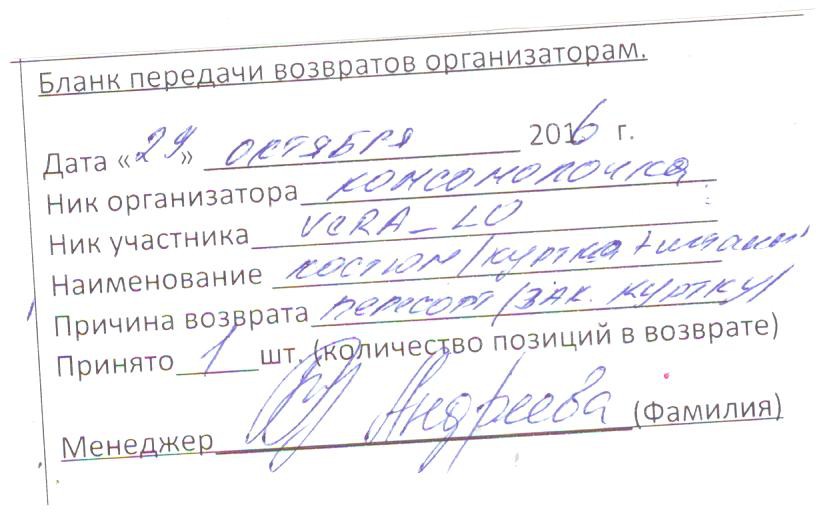 Бланк передачи возвратов организаторам.
Дата «29» октября 2016 г.
Ник организатора комсомолочка
Ник участника VeRA_LO
Наименование костюм/куртка + штаны
Причина возврата пересорт/зак. куртку/
Принято 1 шт. (количество позиций в возврате)
Менеджер Андреева (Фамилия)